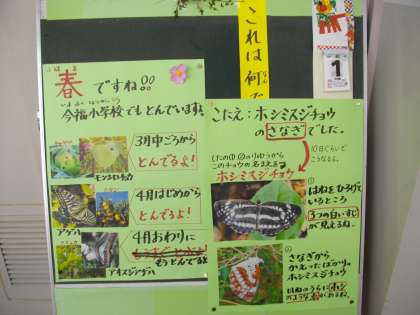 これは何だ
1
はる
春 ですね!!
いまふくしょうがっこう
今福小学校でもとんでいます
3月中ごろから
とんでるよ!
モンキチョウ
4月はじめから
とんでるよ!
アゲハ
4月おわりに
もうとんでるよ
アオスジアゲハ
こたえ:ホシミスジチョウ
のさなぎでした。
10日ぐらいで
こうなるよ。
ホシミスジチョウ
①
はねをひろげて
いるところ
3つの白いすじ
が見えるね。
②
さなぎから
かえったばかりの
ホシミスジチョウ
はねのうらにホシ